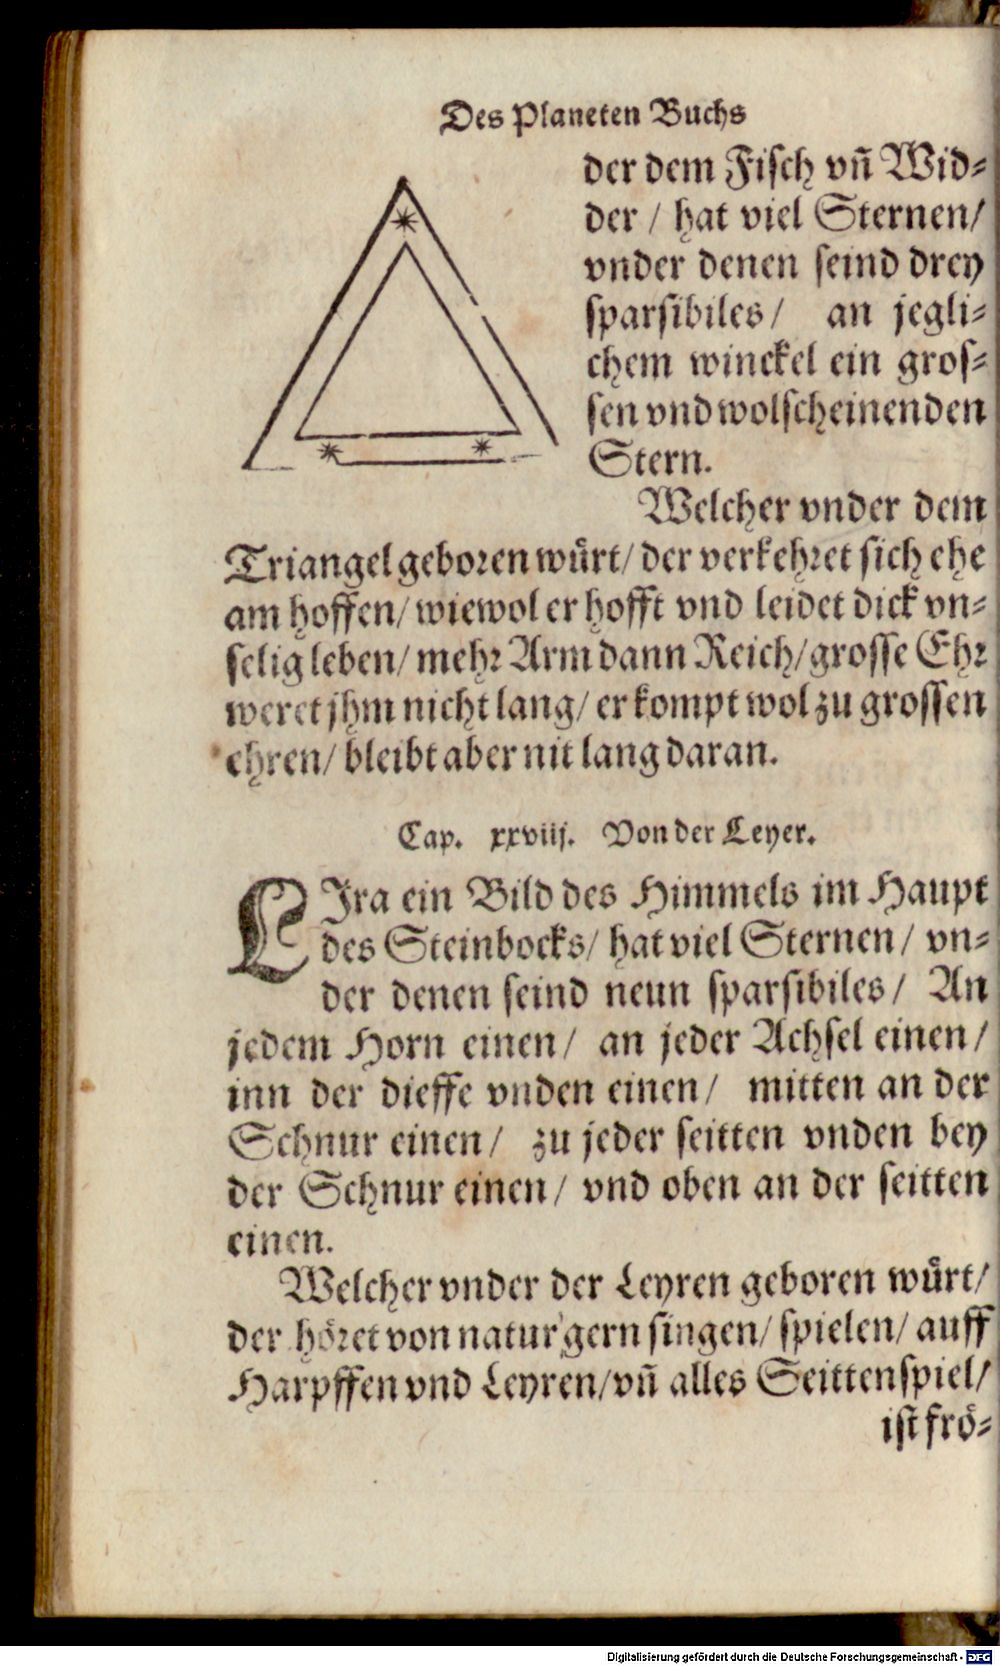 Des Planeten Buchs
der dem Fisch vñ Wid-
der / hat viel Sternen/
vnder denen seind drey
sparsibiles/ an jegli-
chem winckel ein gros-
sen vnd wolscheinenden
Stern.
Welcher vnder dem
Triangel geboren wuͤrt/ der verkehret sich ehe
am hoffen/ wiewol er hofft vnd leidet dick vn-
selig leben/ mehr Arm dann Reich/ grosse Ehr
weret jhm nicht lang/ er kompt wol zu grossen
ehren/ bleibt aber nit lang daran.
Cap. xxviij. Von der Leyer.
LIra ein Bild des Himmels im Haupt
des Steinbocks/ hat viel Sternen/ vn-
der denen seind neun sparsibiles/ An
jedem Horn einen/ an jeder Achsel einen/
inn der dieffe vnden einen/ mitten an der
Schnur einen/ zu jeder seitten vnden bey
der Schnur einen/ vnd oben an der seitten
einen.
Welcher vnder der Leyren geboren wuͤrt/
der hoͤret von natur gern singen/ spielen/ auff
Harpffen vnd Leyren/ vñ alles Seittenspiel/
ist froͤ-
Digitalisierung gefördert durch die Deutsche Forschungsgemeinschaft - DFG